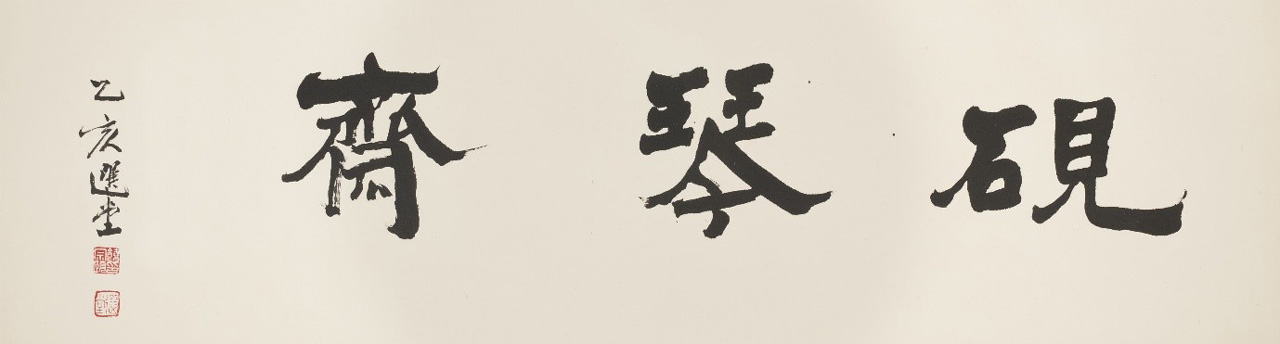 硯琴齋
乙亥選堂